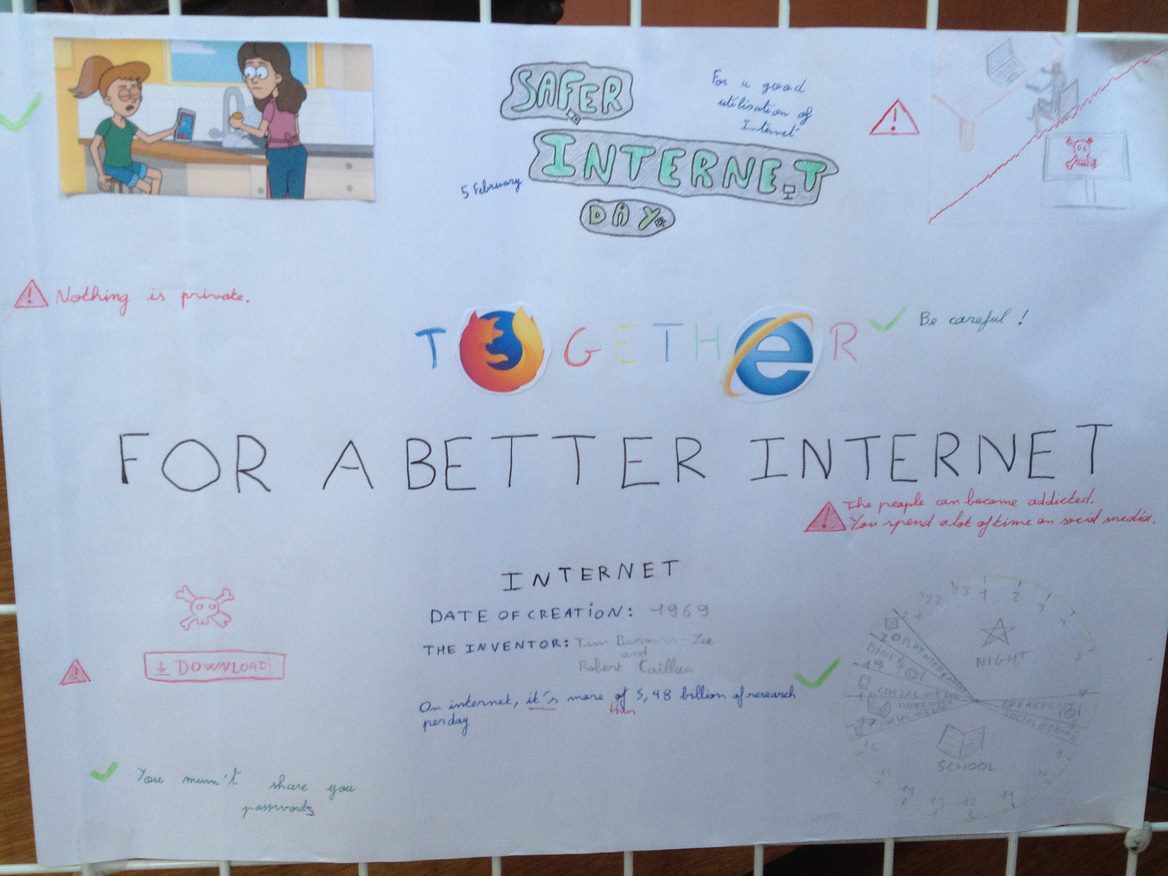 SAFER
INTERNET
DAY
5 February
For a good
utilisation of
Internet
Nothing is private.
TOGETHER
Be careful !
FOR A BETTER INTERNET
The people can become addicted.
You spend a lot of time on social media.
INTERNET
DATE OF CREATION: 1969
THE INVENTOR: Tim Barners-Lee
and
Robert Caillau
On internet, it's more of 5,48 billion of research
than
per day
DOWNLOAD
You musn't share you
passwords
23 1 2 3 4
22
20
DINER
19
NIGHT
SOCIAL MEDIA
BREAKFAST
SOCIAL MEDIA
17
SCHOOL
14 13 12 11